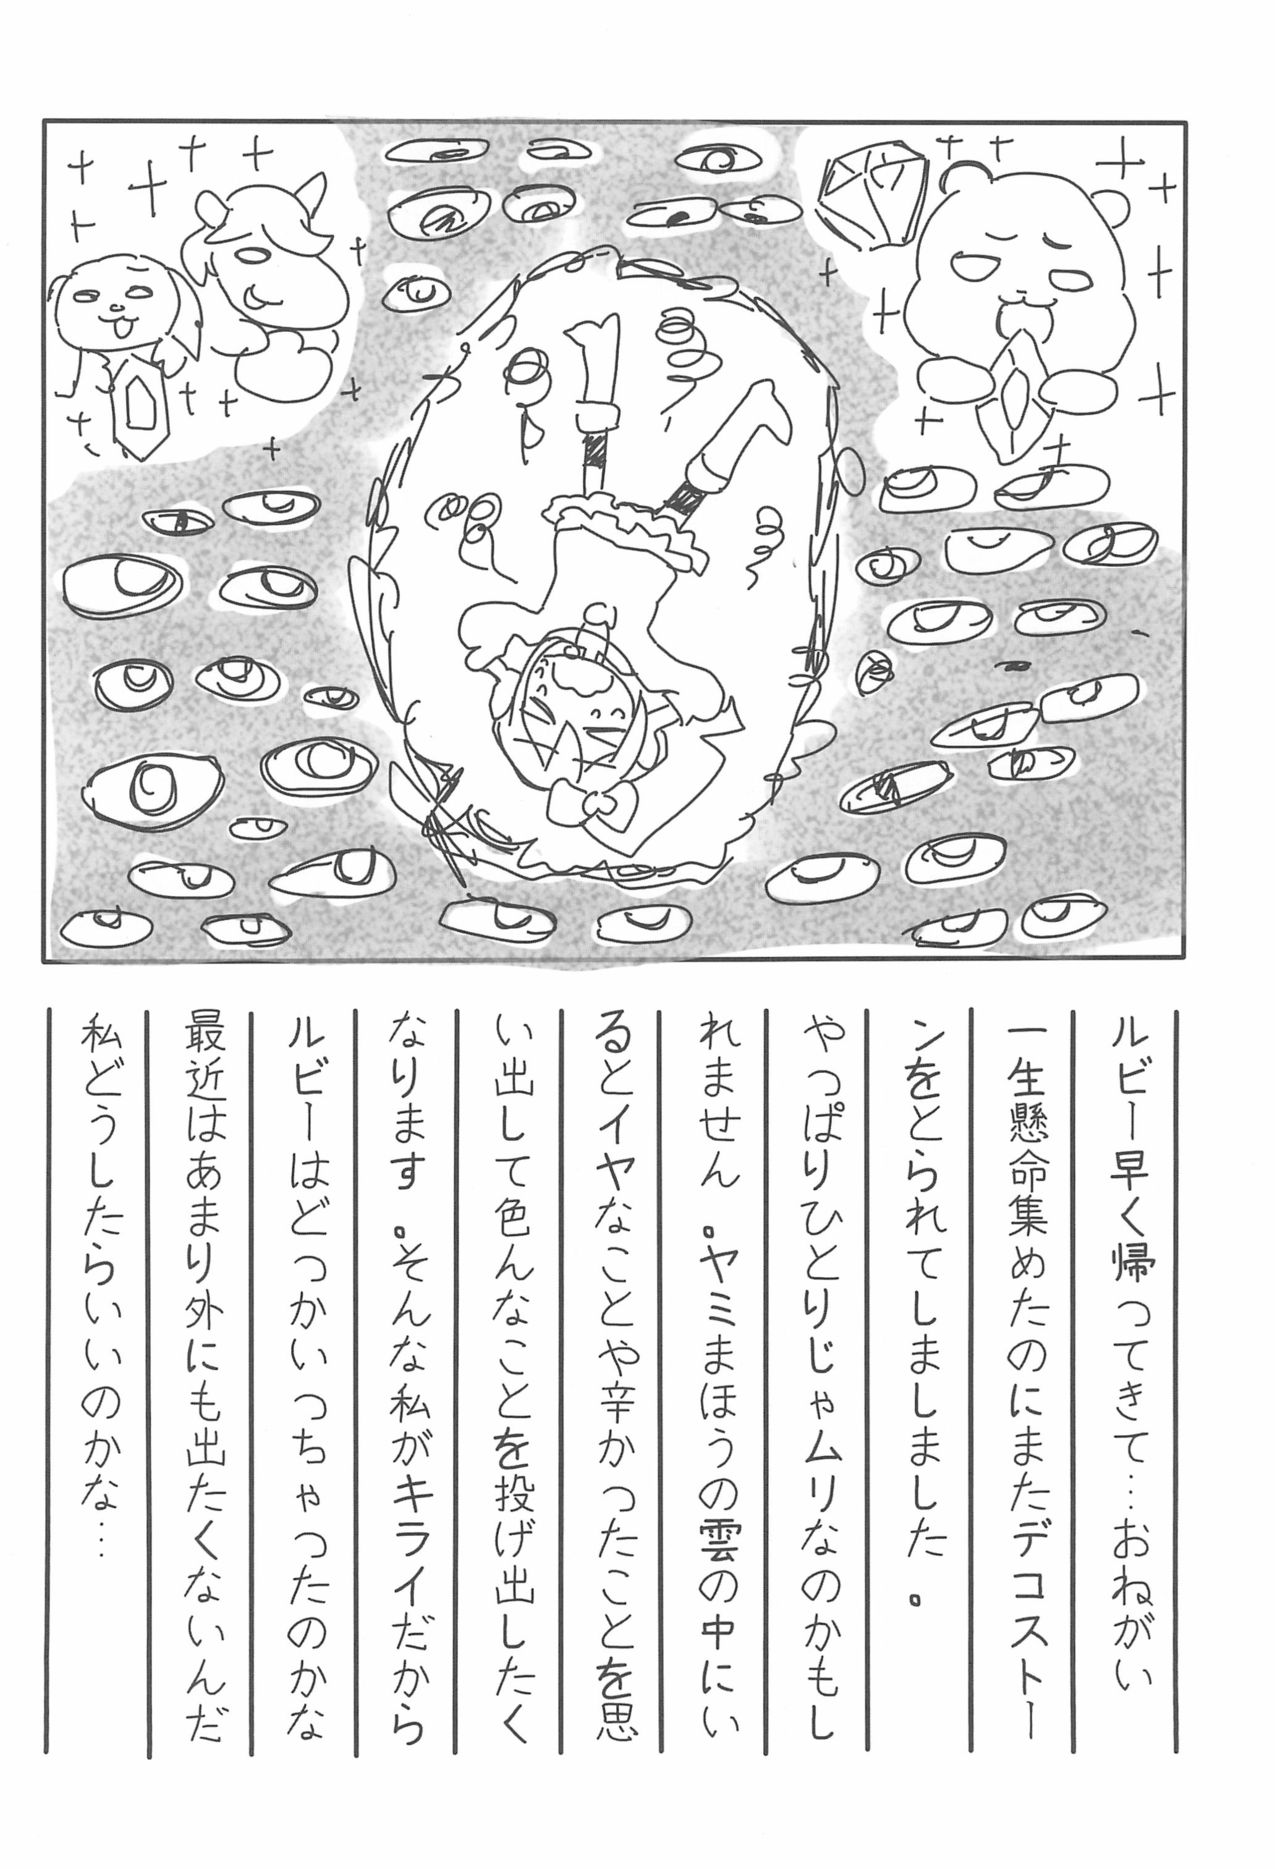 ルビー早く帰ってきて…おねがい
一生懸命集めたのにまたデコストー
ンをとられてしましました。
やっぱりひとりじゃムリなのかもし
れません。ヤミまほうの雲の中にい
るとイヤなことや辛かったことを思
い出して色んなことを投げ出したく
なります。そんな私がキライだから
ルビーはどっかいっちゃったのかな
最近はあまり外にも出たくないんだ
私どうしたらいいのかな…